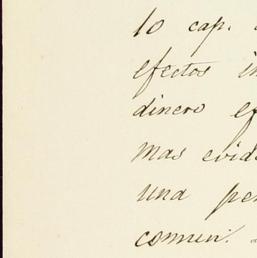 lo cap.
efectos in
dinero ef
mas evid
una per
comun.